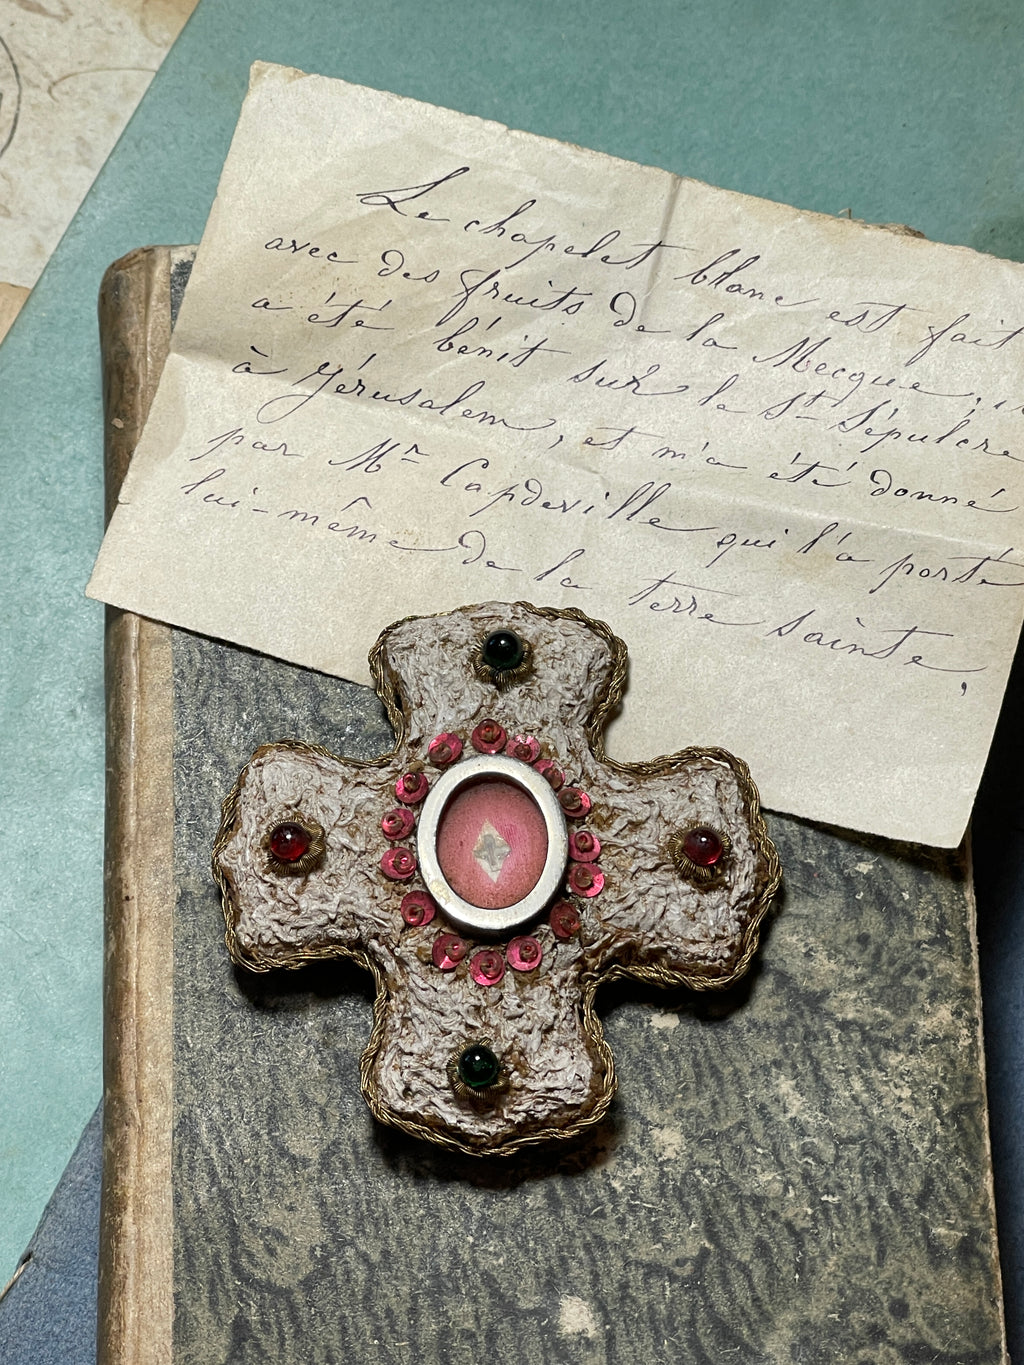 Le chapelet blanc est fait
avec des fruits de la Mecque, il
a été bénit sur le St Sépulcre
à Jérusalem, et m'a été donné
par Mr Capdeville qui l'a porté
lui-même de la terre sainte.